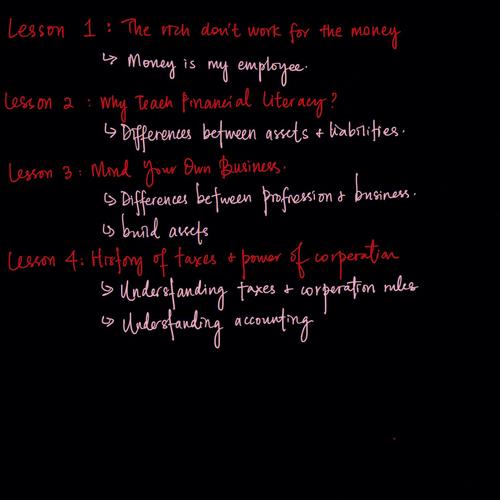 Lesson 1 : The rich don't work for the money
↳ Money is my employee.
Lesson 2 : Why Teach Financial Literacy?
↳ Differences between assets + liabilities.
Lesson 3 : Mind Your Own Business.
↳ Differences between profression + business.
↳ build assets
Lesson 4 : History of taxes + power of corperation
↳ Understanding taxes + corperation rules
↳ Understanding accounting